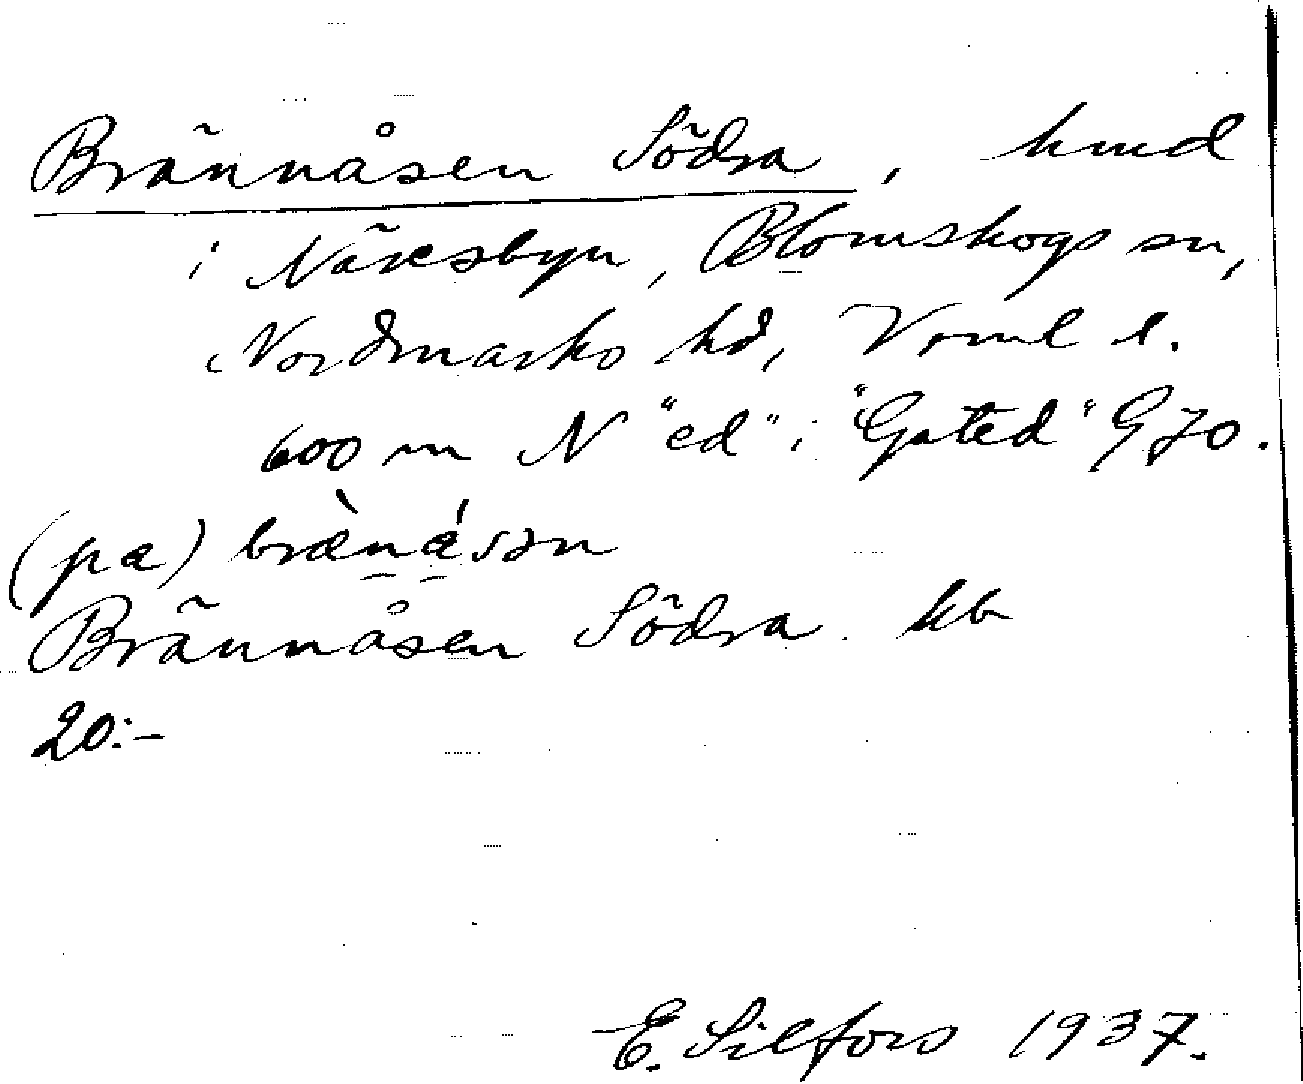 Brännåsen Södra, hmd
i Näresbyn, Blomskogs sn,
Nordmarks hd, Vrml l.
600 m N "ed" i "Gsted" G70.
(pa) brænásən
Brännåsen Södra. kb
20:-
E. Silfors 1937.